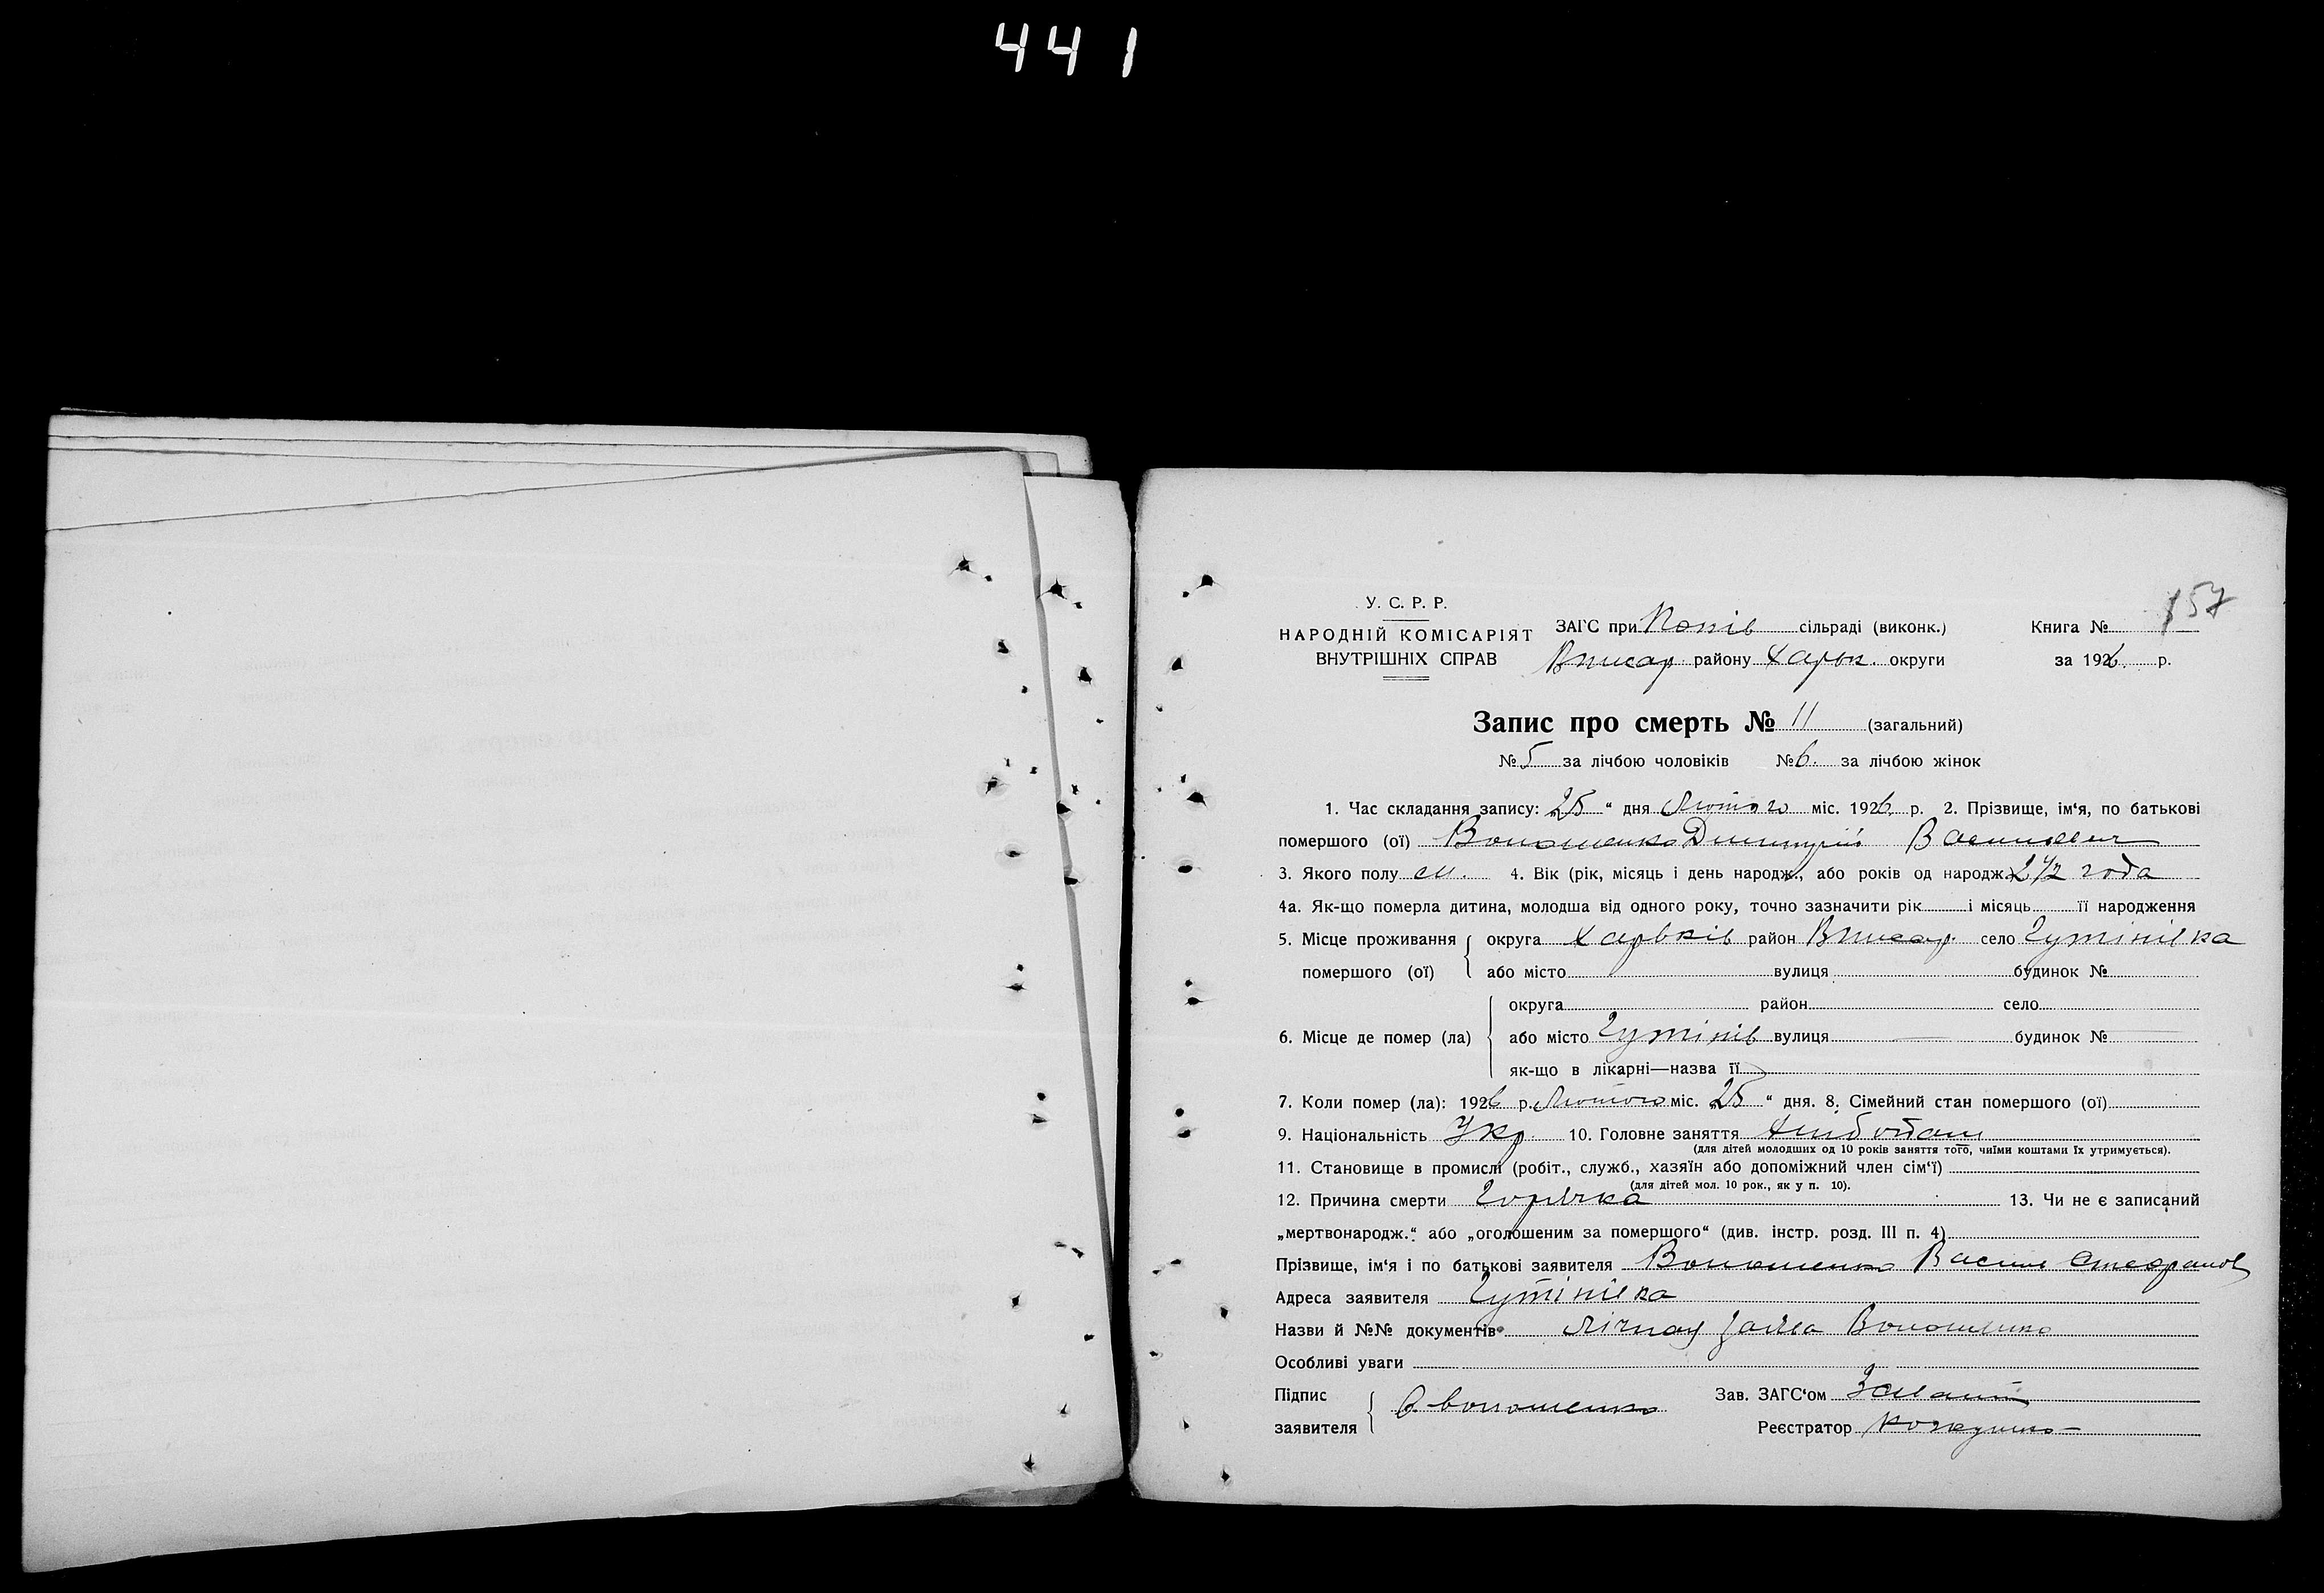 441
157
У. С. Р. Р.
НАРОДНІЙ КОМІСАРІЯТ
ВНУТРІШНІХ СПРАВ
ЗАГС при Попів сільраді (виконк.)
району Харьк. округи
Книга №
за 1926 р.
Запис про смерть № 11 (загальний)
№ 5 за лічбою чоловіків № 6. за лічбою жінок
1. Час складання запису: 25 “ дня Лютого міс. 1926 р. 2. Прізвище, ім‘я, по батькові
помершого (ої) Волошенко Дмитрій Васильевич
3. Якого полу м. 4. Вік (рік, місяць і день народж., або років од народж. 2 1/2 года
4а. Як-що померла дитина, молодша від одного року, точно зазначити рік і місяць її народження
5. Місце проживання округа Харьків район село Гутінівка
помершого (ої) або місто вулиця будинок №
округа район село
6. Місце де помер (ла) або місто Гутінів вулиця — будинок № —
як-що в лікарні—назва її
7. Коли помер (ла): 1926 р. Лютого міс. 25 “ дня. 8. Сімейний стан помершого (ої)
9. Національність Укр. 10. Головне заняття
(для дітей молодших од 10 років заняття того, чиїми коштами їх утримується).
11. Становище в промислі (робіт., служб., хазяїн або допоміжний член сім‘ї)
(для дітей мол. 10 рок., як у п. 10).
12. Причина смерти Горячка 13. Чи не є записаний
„мертвонародж.“ або „оголошеним за помершого“ (див. інстр. розд. III п. 4)
Прізвище, ім‘я і по батькові заявителя Волошенко Василь Стефанов
Адреса заявителя Гутінівка
Назви й №№ документів Лічная Заява Волошенко
Особливі уваги
Підпис
заявителя Волошенко
Зав. ЗАГС‘ом
Реєстратор